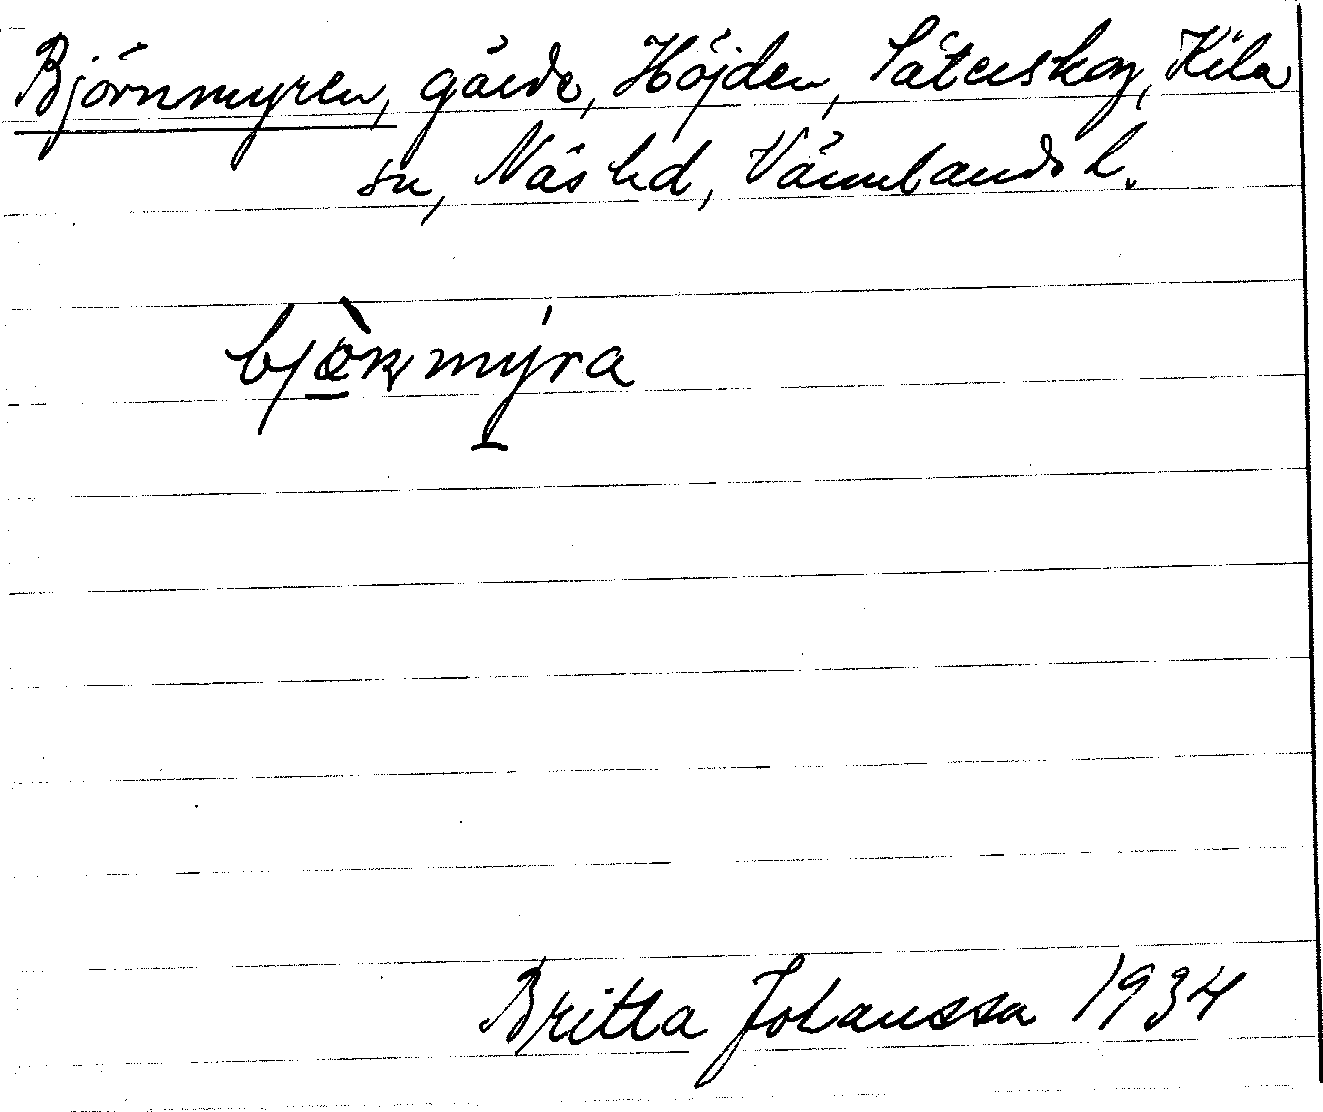 Björnmyren, gärde, Höjden, Säterskog, Kila
sn, Näs hd, Värmlands l.
bjö̀ṇmýra
Britta Johansson 1934